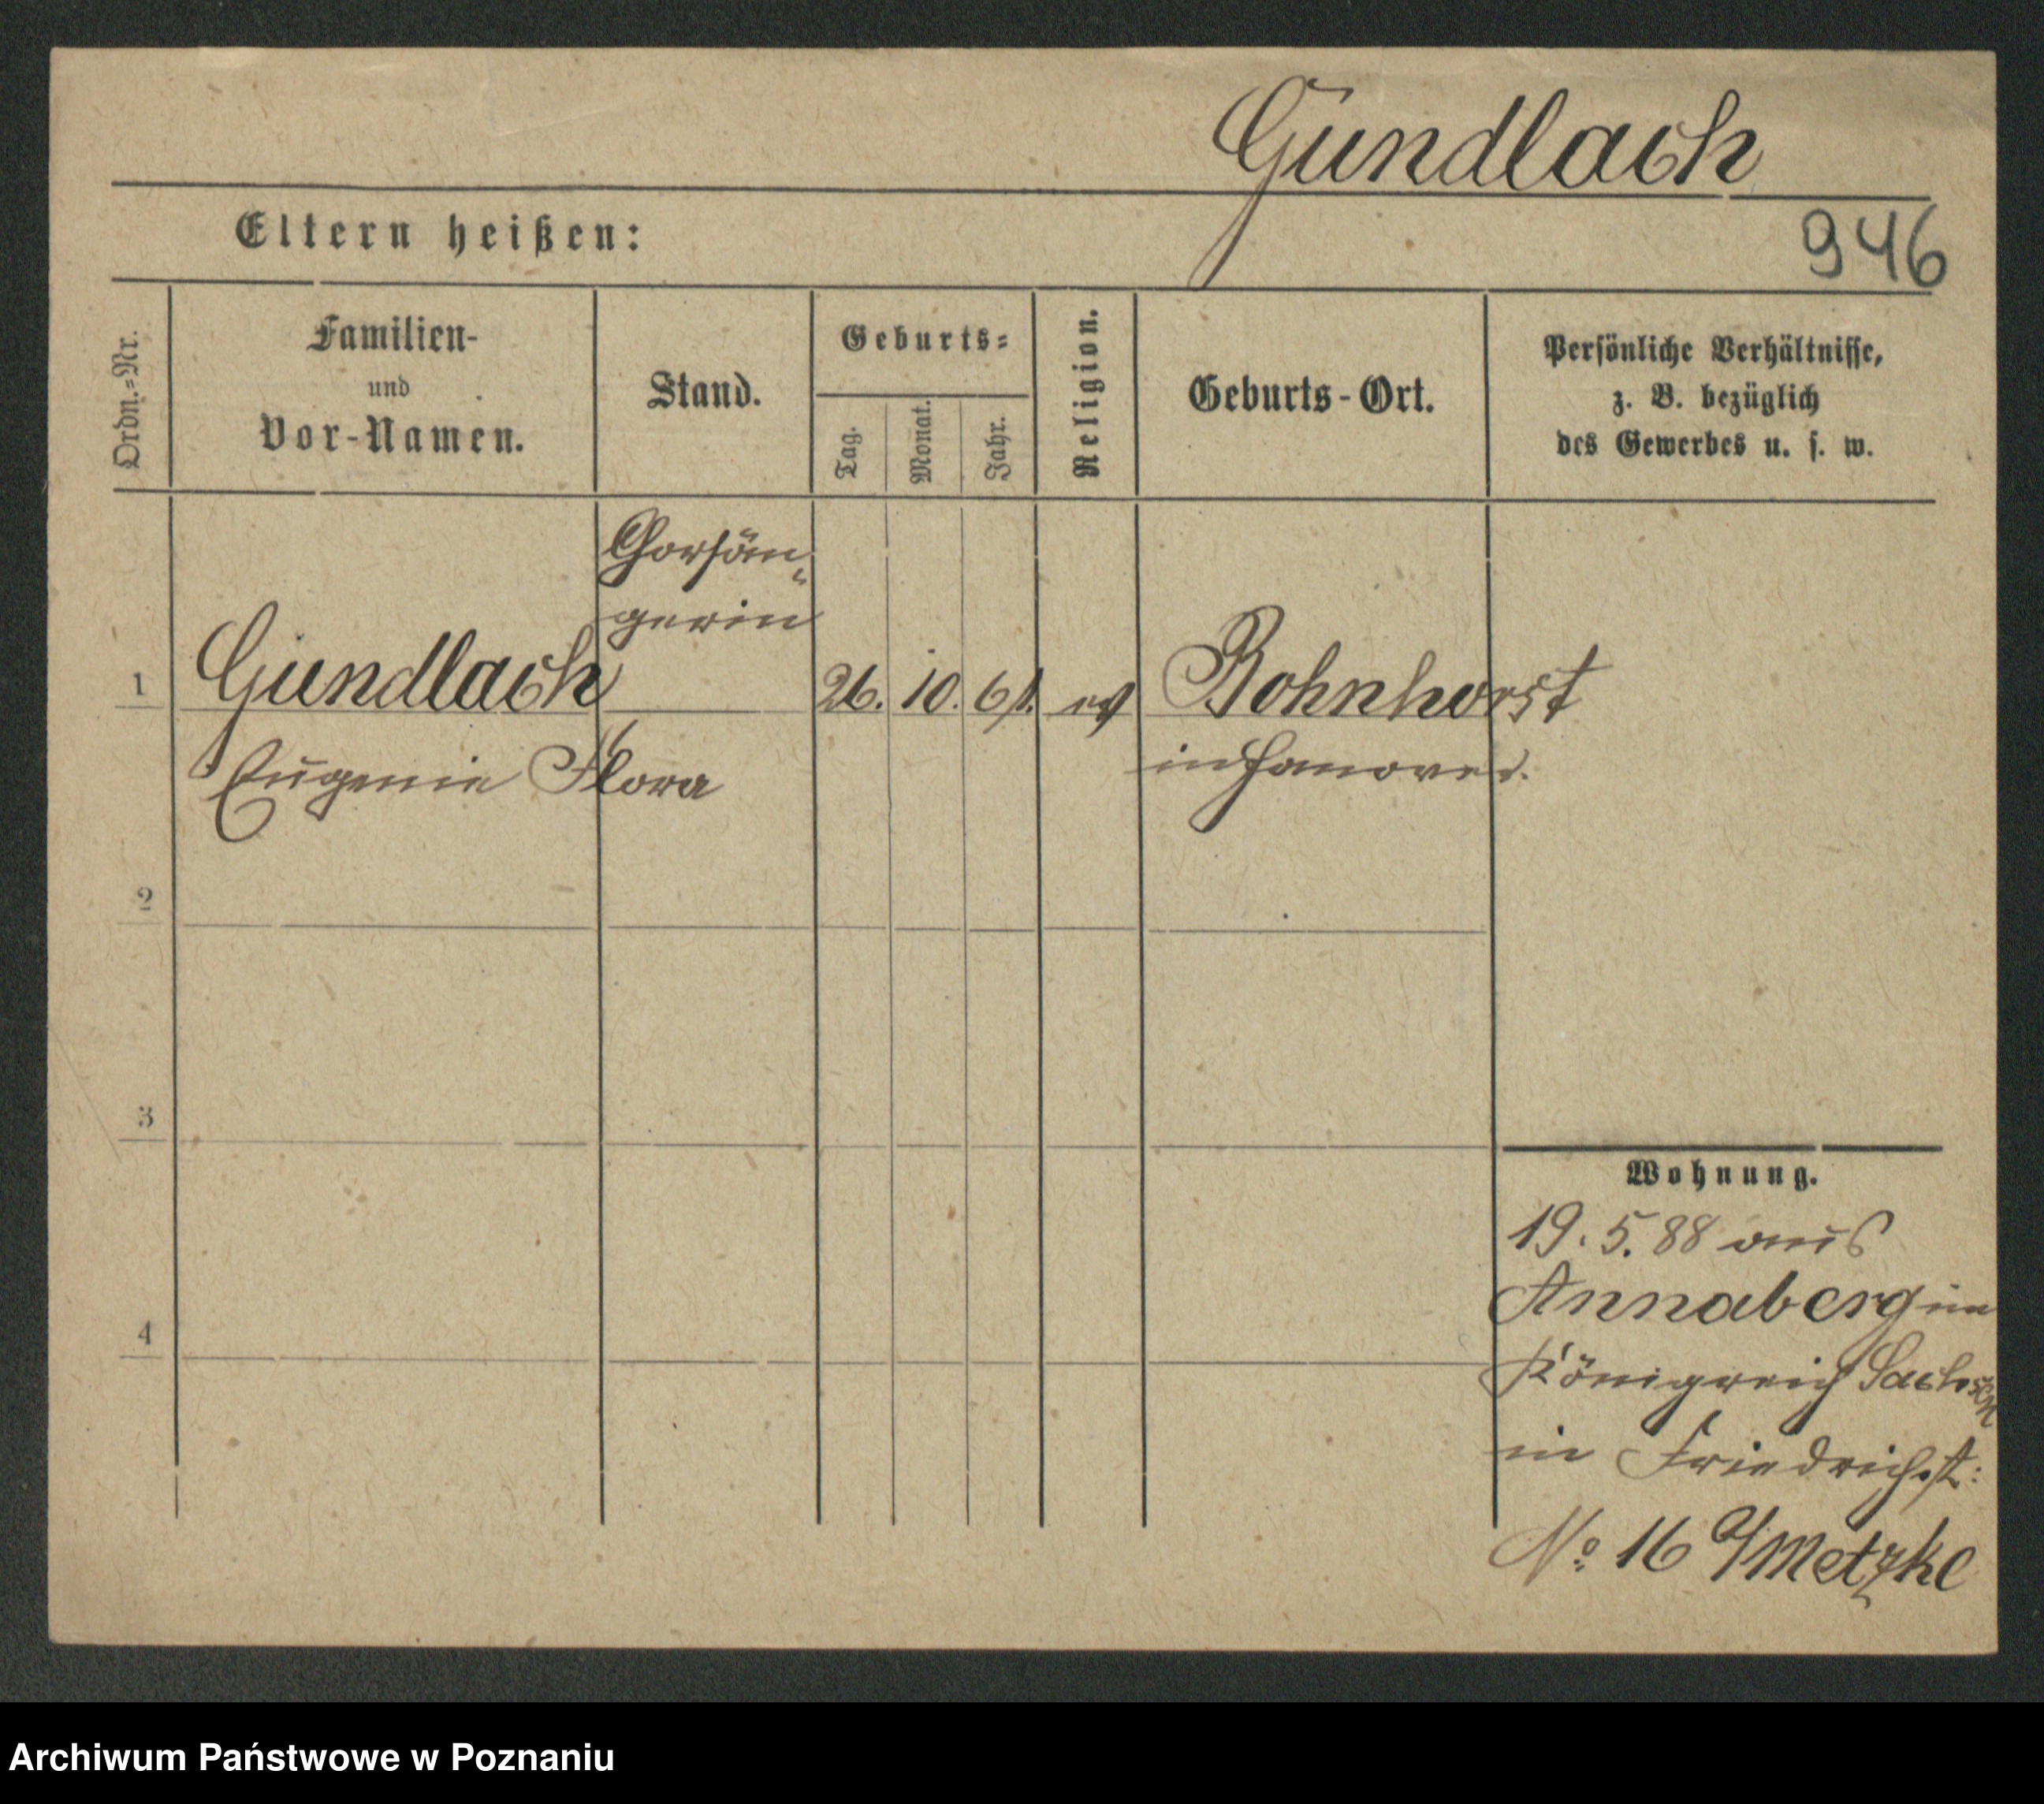 Gundlach
946
Eltern heißen:
Ordn.-Nr.
Familien-
und
Vor-Namen.
Stand.
Geburts-
Tag.
Monat.
Jahr.
Religion.
Geburts-Ort.
Persönliche Verhältnisse,
z. B. bezüglich
des Gewerbes u. s. w.
Chorsän-
gerin
1 Gundlach 26. 10. 61. ev Bohnhorst
Eugenie Flora in Hanover.
2
3
4
Wohnung.
19. 5. 88 aus
Annaberg im
Königreich Sachsen
in Friedrichst:
No. 16 Metzke
Archiwum Państwowe w Poznaniu